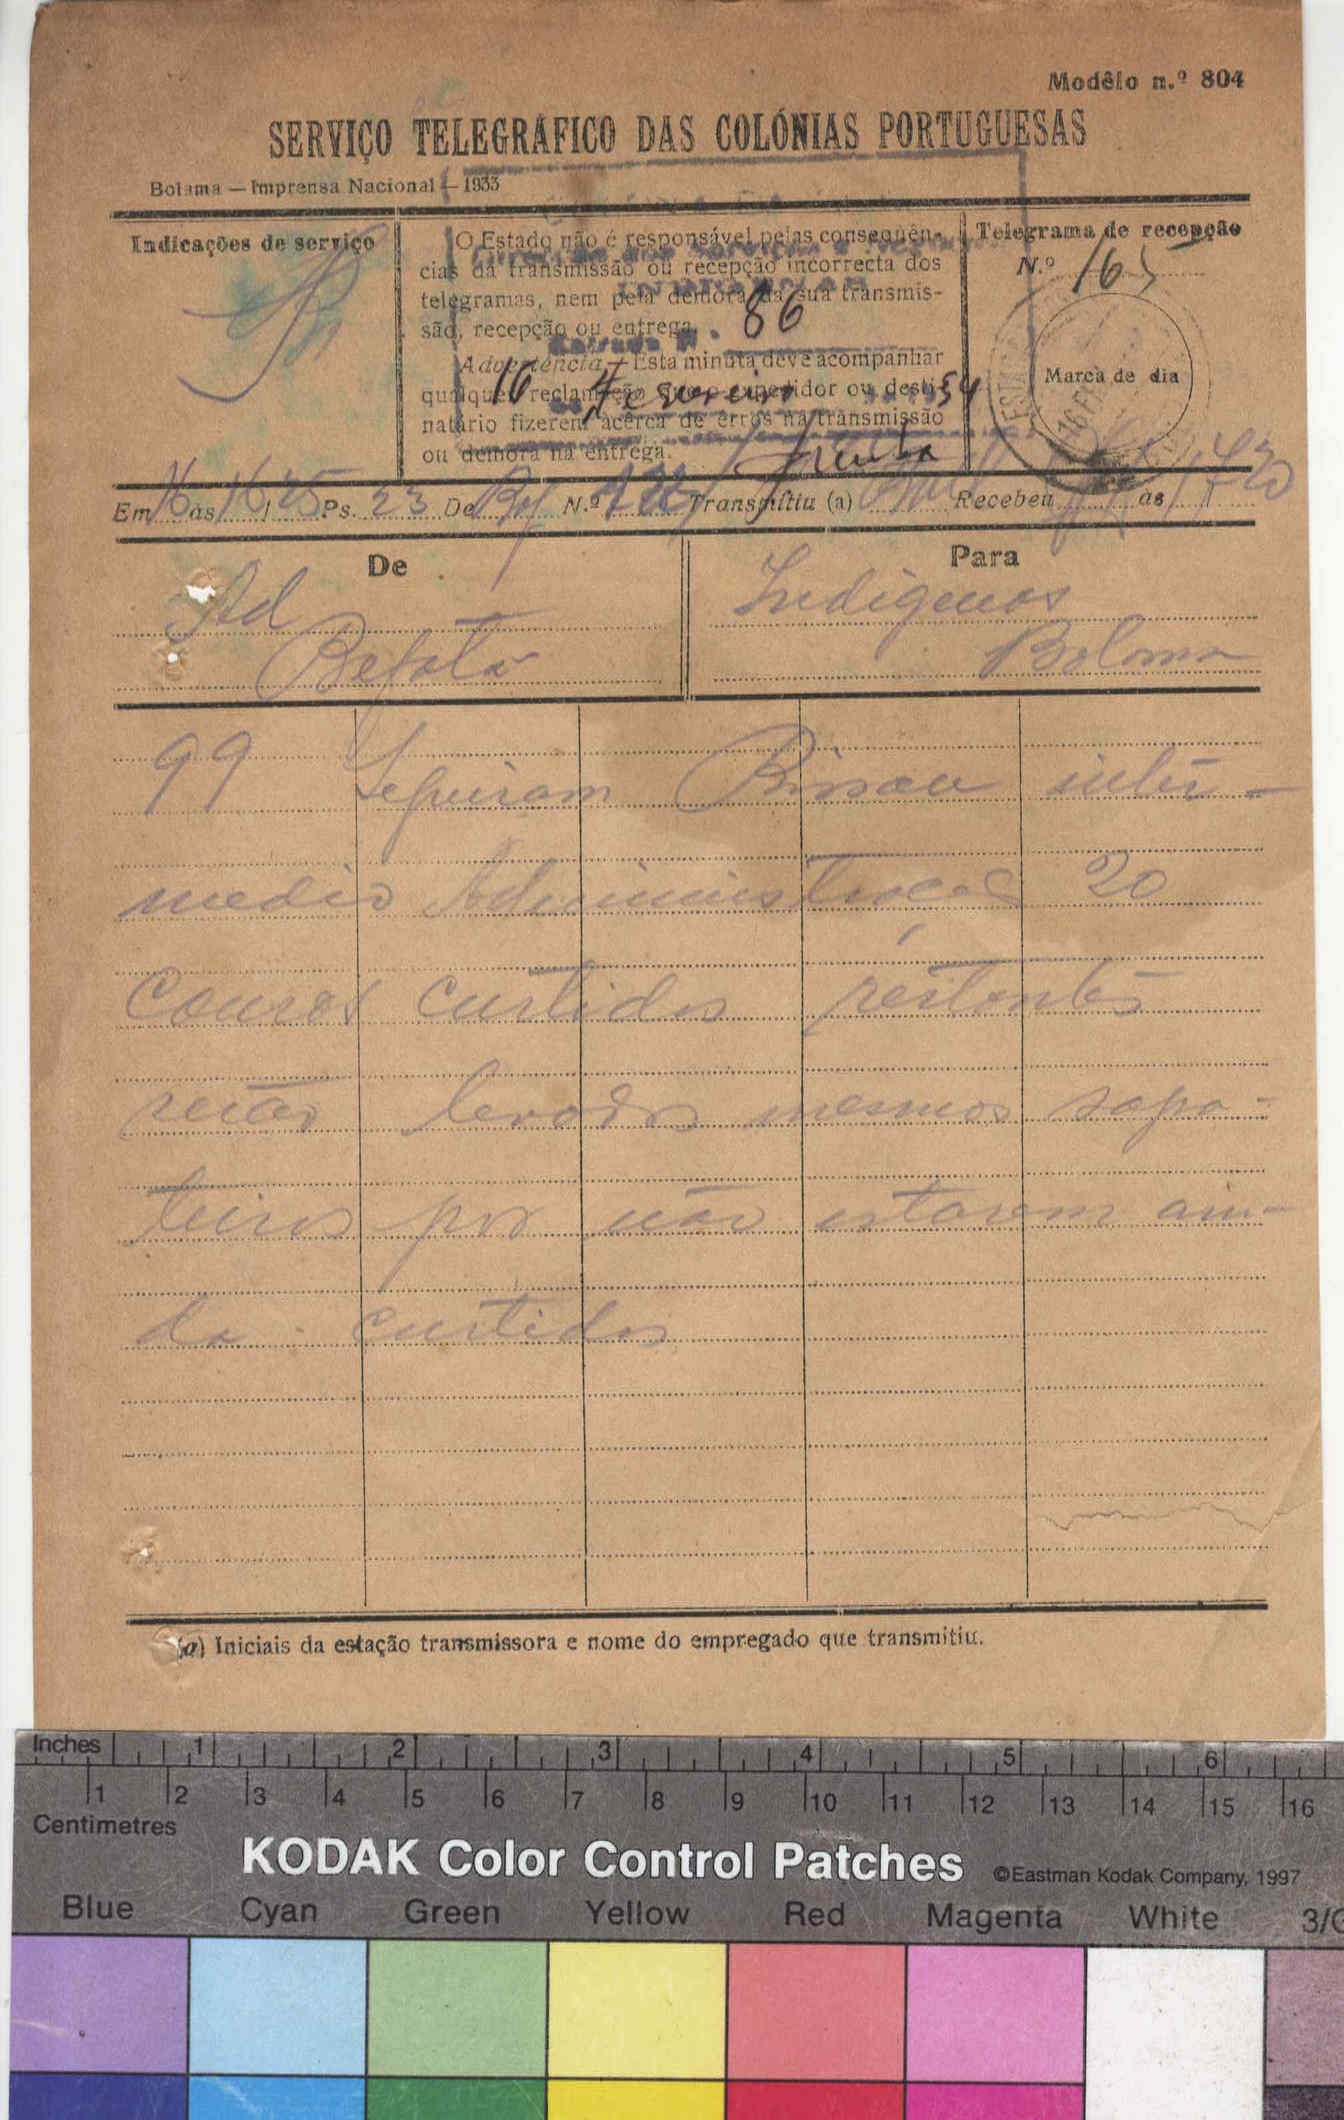 Modêlo n.º 804
SERVIÇO TELEGRÁFICO DAS COLÓNIAS PORTUGUESAS
Bolama — Imprensa Nacional — 1933
Indicações de serviço
O Estado não é responsável pelas consequên-
cias da transmissão ou recepção incorrecta dos
telegramas, nem pela demora da sua transmis-
são, recepção ou entrega.
Advertência — Esta minuta deve acompanhar
qualquer reclamação que o expedidor ou desti-
natário fizerem acerca de erros na transmissão
ou demora na entrega.
86
16 Fevereiro 34
Telegrama de recepção
N.º 165
Marca de dia
Em 16 às 16/25 Ps. 23 De N.º Transmitiu (a) Recebeu às
De
Ad
Bafatá
Para
Indigenas
Bolama
99 Seguiram Bissau inter-
medio Administração 20
couros curtidos restantes
não levados mesmos sapa-
teiros por não estarem ain-
da curtidos
(a) Iniciais da estação transmissora e nome do empregado que transmitiu.
Inches 1 2 3 4 5 6
1 2 3 4 5 6 7 8 9 10 11 12 13 14 15 16
Centimetres
KODAK Color Control Patches ©Eastman Kodak Company, 1997
Blue Cyan Green Yellow Red Magenta White